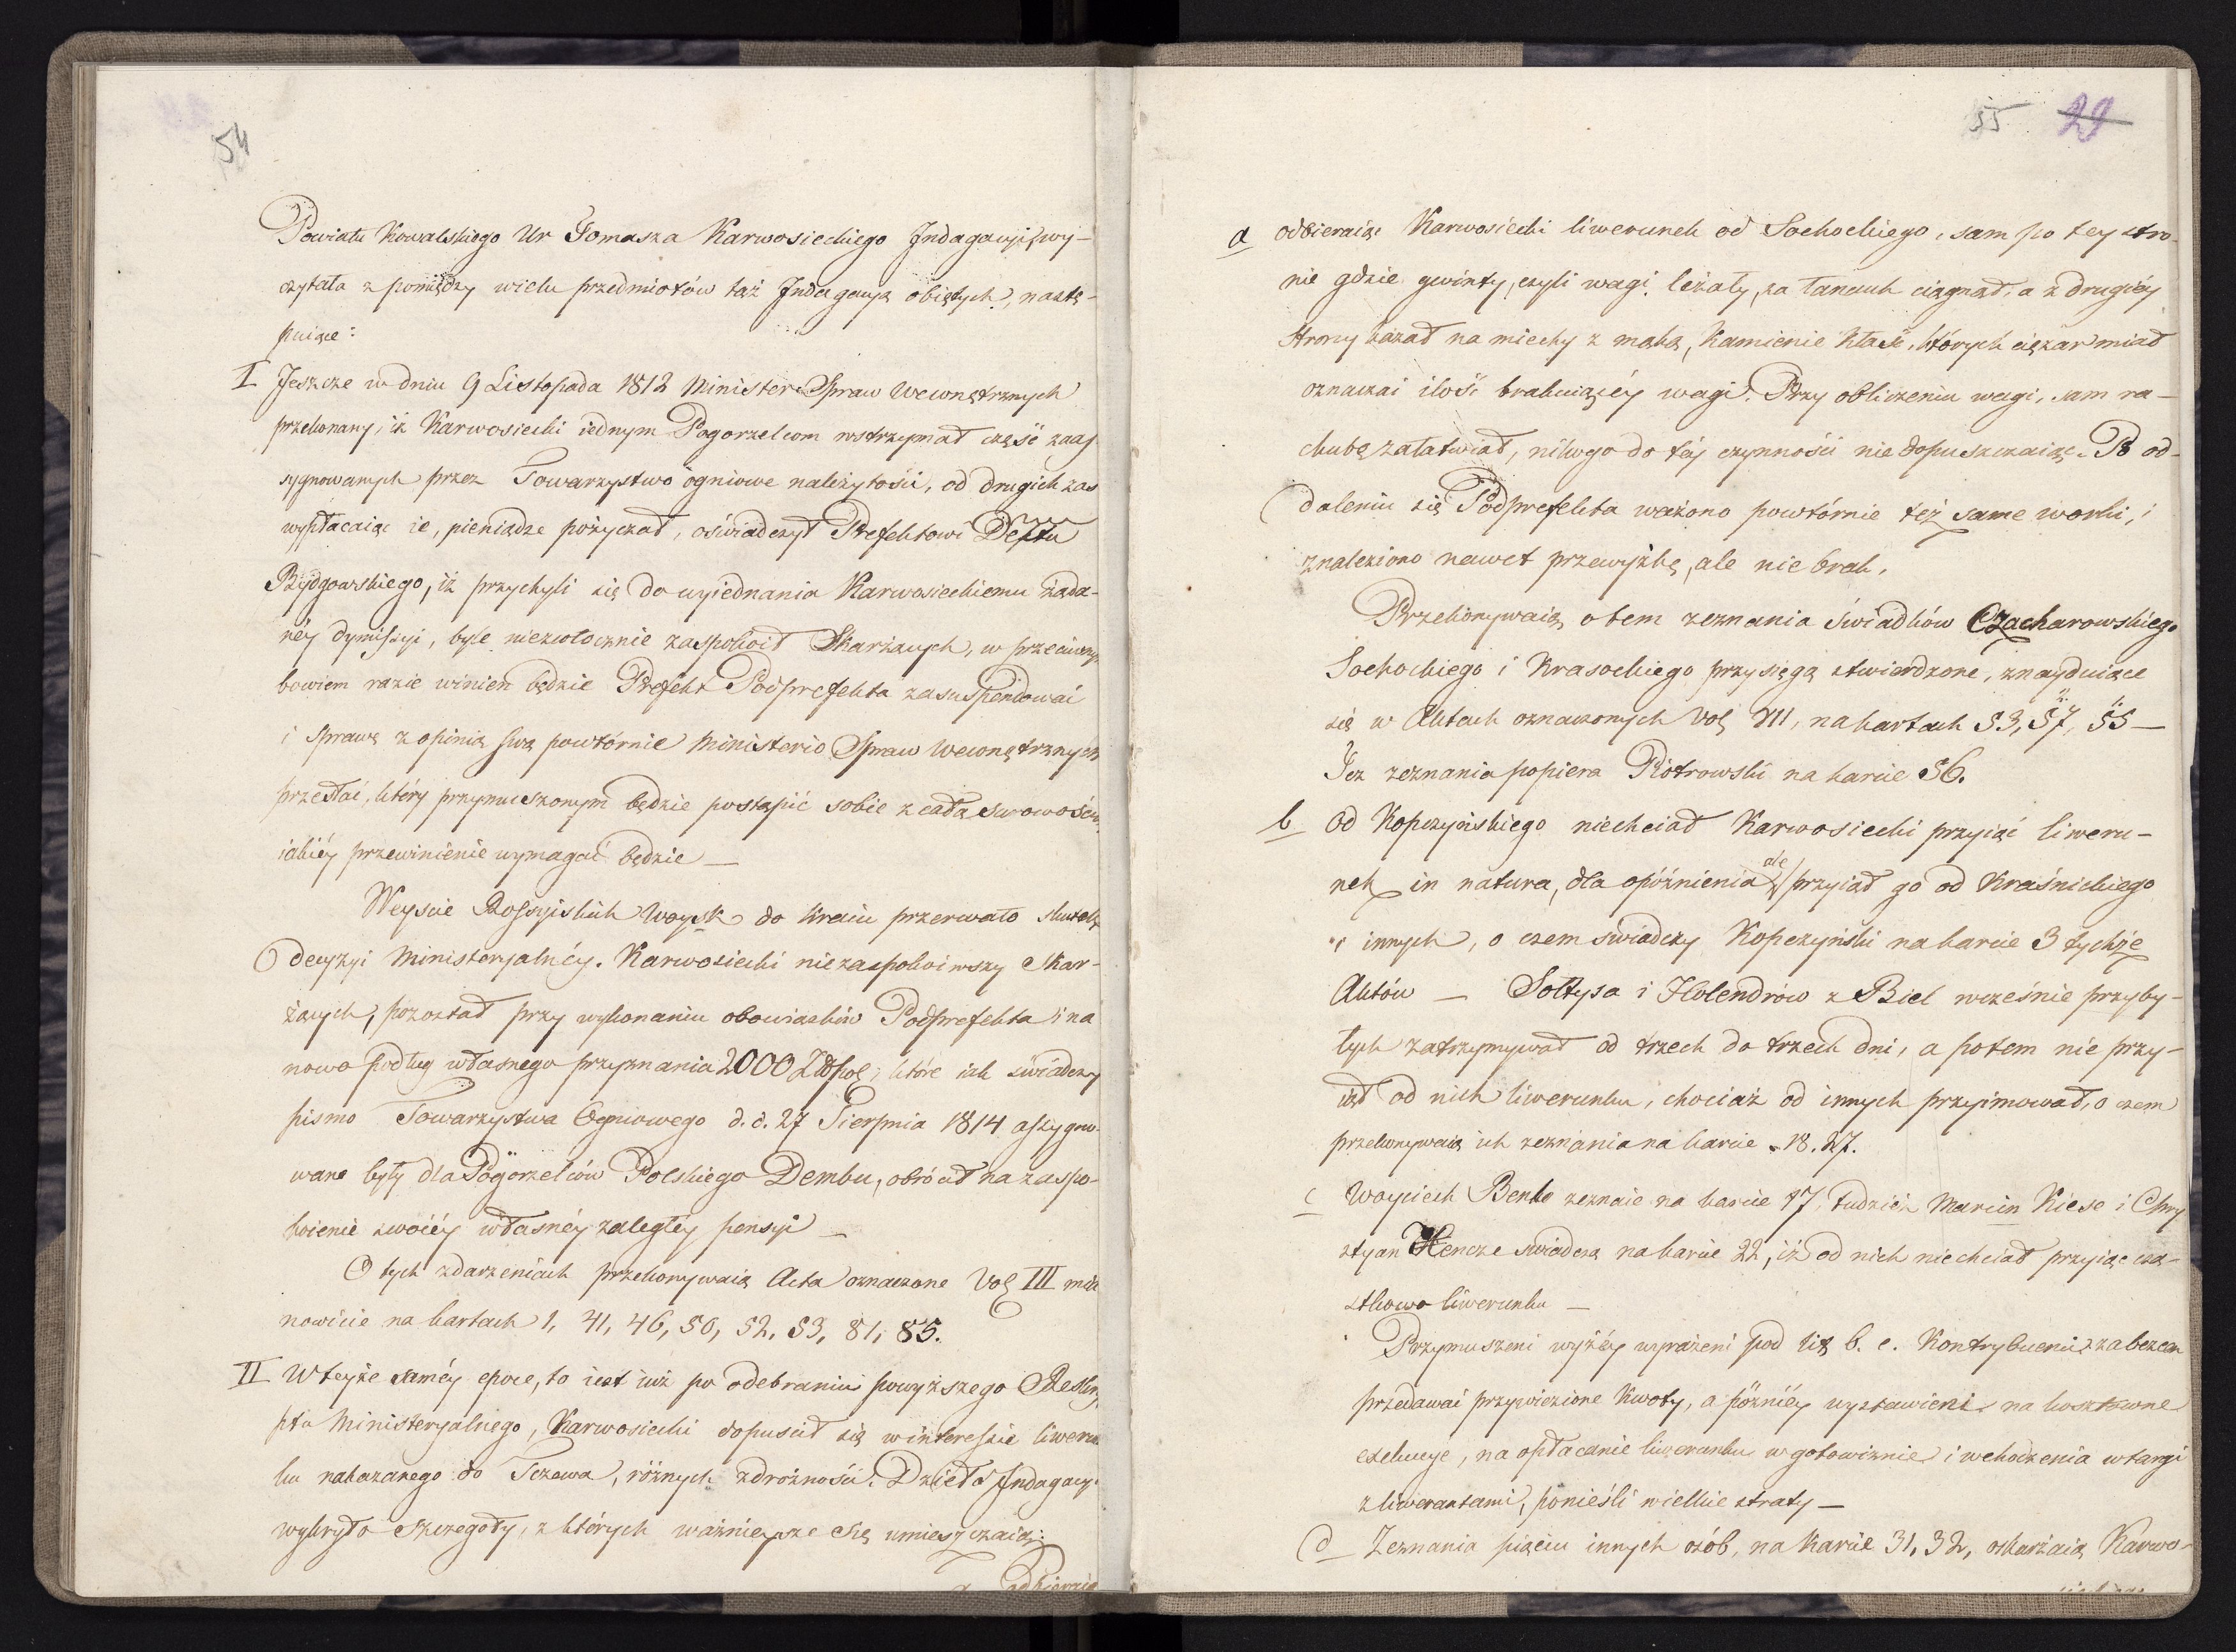 54
Powiatu Kowalskiego Ur Tomasza Karwosieckiego Indagacyi, wy-
czytała z pomiędzy wielu przedmiotów taż Indagacyą obiętych, nastę-
puiące:
I Jeszcze w dniu 9 Listopada 1812 Minister Spraw Wewnętrznych
przekonany, iż Karwosiecki iednym Pogorzelcom wstrzymał część zaas
sygnowanych przez Towarzystwo ogniowe należytości, od drugich zaś
wypłacaiąc ie, pieniądze pożyczał, oświadczył Prefektowi Deptu
Bydgoskiego, iż przychyli się do wyiednania Karwosieckiemu żąda-
néy dymissyi, byle niezwłocznie zaspokoił Skarżących, w przeciwnym
bowiem razie winien będzie Prefekt Podprefekta zasuspendować
i sprawę z opinią swą powtórnie Ministerio Spraw Wewnętrznych
przesłać, który przymuszonym będzie postąpić sobie z całą surowością
iakiéy przewinienie wymagać będzie —
Weyście Rossyiskich Woysk do kraiu przerwało skutek
decyzyi Ministeryalnéy. Karwosiecki niezaspokoiwszy Skar-
żących, pozostał przy wykonaniu obowiązków Podprefekta i na
nowo podług własnego przyznania 2000 Złłpol, które iak świadczy
pismo Towarzystwa Ogniowego d. d. 27 Sierpnia 1814 assygno-
wane były dla Pogorzelców Polskiego Dembu, obrócił na zaspo-
koienie swoiéy własnéy zaległéy pensyi —
O tych zdarzeniach przekonywaią Acta oznaczone Vol III mia
nowicie na kartach 1, 41, 46, 50, 52, 53, 81, 85.
II W teyże saméy epoce, to iest iuż po odebraniu powyższego Reskry
ptu Ministeryalnego, Karwosiecki dopuścił się w interessie liwerun
ku nakazanego do Tczewa, różnych zdrożności. Dzieło Indagacyi
wykryło szczegóły, z których ważnieysze się umieszczaią:
a Odbieraiąc
55 29
a odbieraiąc Karwosiecki liwerunek od Sochockiego, sam po tey stro-
nie gdzie gwinty, czyli wagi leżały, za łańcuch ciągnął, a z drugiéy
strony kazał na miechy z mąką, Kamienie Kłaść, których ciężar miał
oznaczać ilość brakuiącéy wagi. Przy obliczeniu wagi, sam ra-
chubę załatwiał, nikogo do téy czynności nie dopuszczaiąc. Po od-
daleniu się Podprefekta ważono powtórnie też same worki, i
znaleziono nawet przewyżkę, ale nie brak.
Przekonywaią o tem zeznania świadków Czacharowskiego
Sochockiego i Krasockiego przysięgą stwierdzone, znayduiące
się w Aktach oznaczonych Vol VII, na kartach 53, 57, 55 —
Też zeznania popiera Piotrowski na karcie 56.
b Od Kopczyńskiego niechciał Karwosiecki przyiąć liweru-
nek in natura, dla opóźnienia, ale przyiął go od Kraśnickiego
i innych, o czem świadczy Kopczyński na karcie 3 tychże
Aktów — Sołtysa i Holendrów z Biel wcześnie przyby-
łych zatrzymywał od trzech do trzech dni, a potem nie przy-
iął od nich liwerunku, chociaż od innych przyimował, o czem
przekonywaią ich zeznania na karcie 18. 27.
c Woyciech Benke zeznaie na karcie 17, tudzież Marcin Kiese i Chry
styan Hencze świadczą na karcie 22, iż od nich nie chciał przyiąc czą-
stkowo liwerunku —
Przymuszeni wyżéy wyrażeni pod lit b. c. Kontrybuenci za bezcen
przedawać przywiezione Kwoty, a późniéy wystawieni na kosztowne
exekucye, na opłacanie liwerunku w gotowiznie i wchodzenia w targi
z liwerantami, ponieśli wielkie straty —
d Zeznania pięciu innych osób, na karcie 31, 32, oskarżaią Karwo-